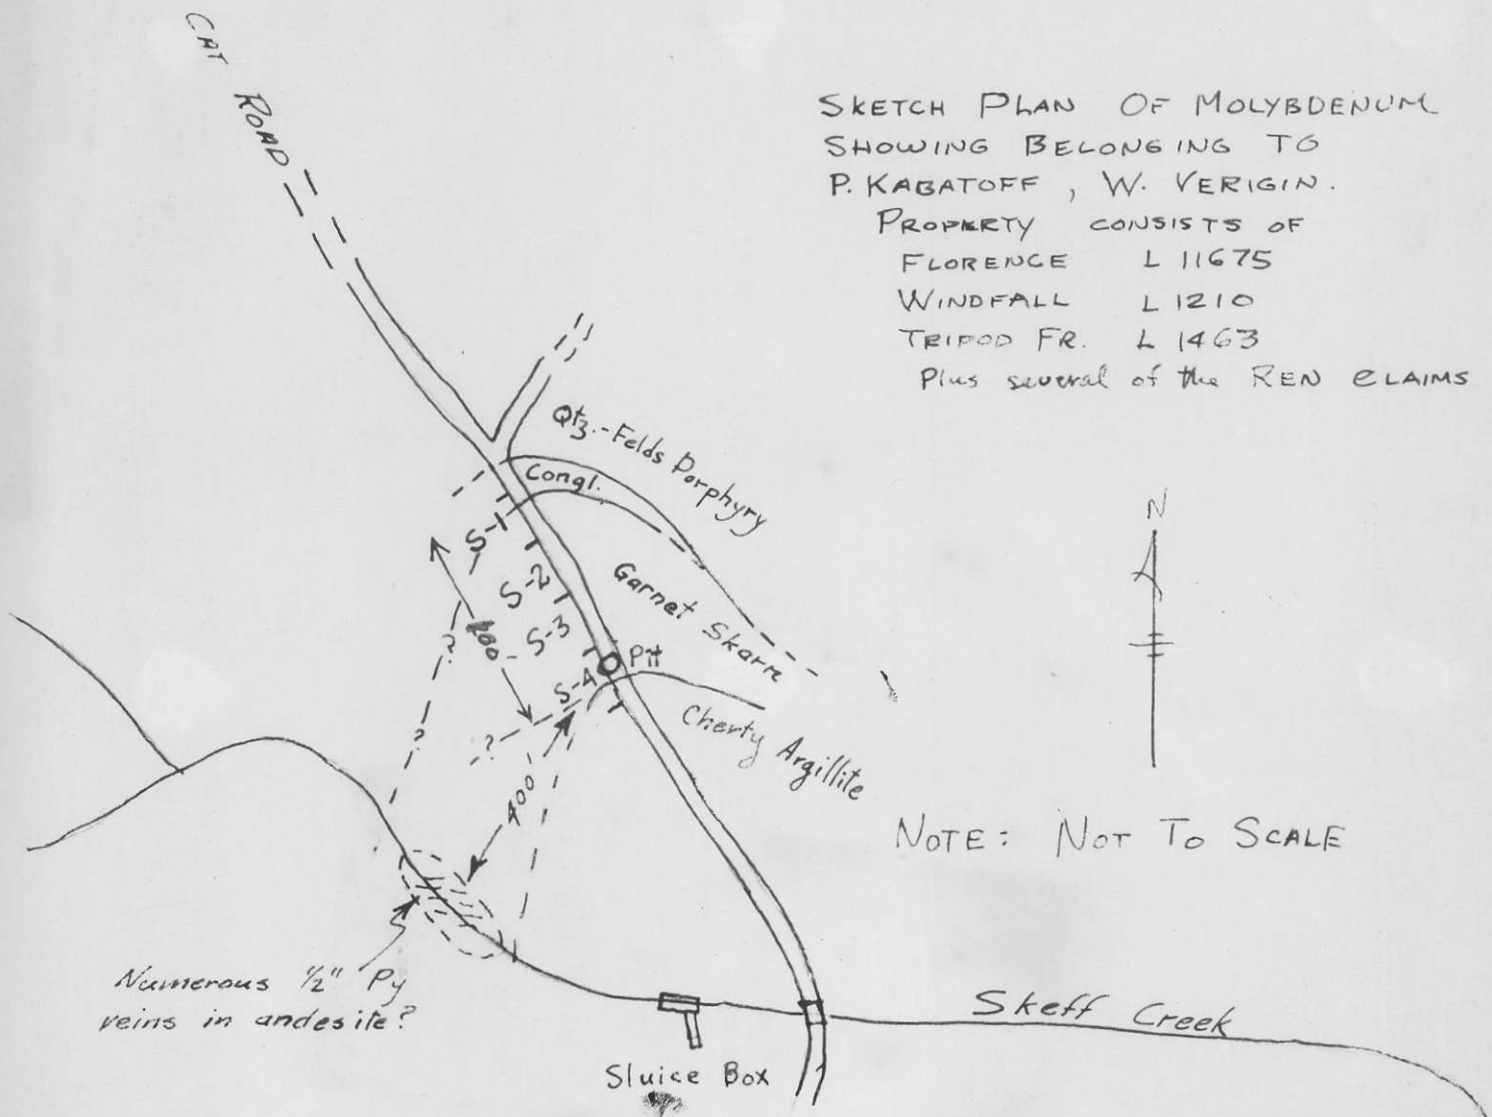 CAT ROAD
SKETCH PLAN OF MOLYBDENUM
SHOWING BELONGING TO
P. KABATOFF , W. VERIGIN.
PROPERTY CONSISTS OF
FLORENCE L 11675
WINDFALL L 1210
TRIPOD FR. L 1463
Plus several of the REN CLAIMS
Qtz.-Felds Porphyry
Congl.
N
S-1
S-2
Garnet Skarn
S-3
?
Pit
S-4
Cherty Argillite
?
?
400
NOTE: NOT TO SCALE
Numerous 1/2" Py
veins in andesite?
Skeff Creek
Sluice Box